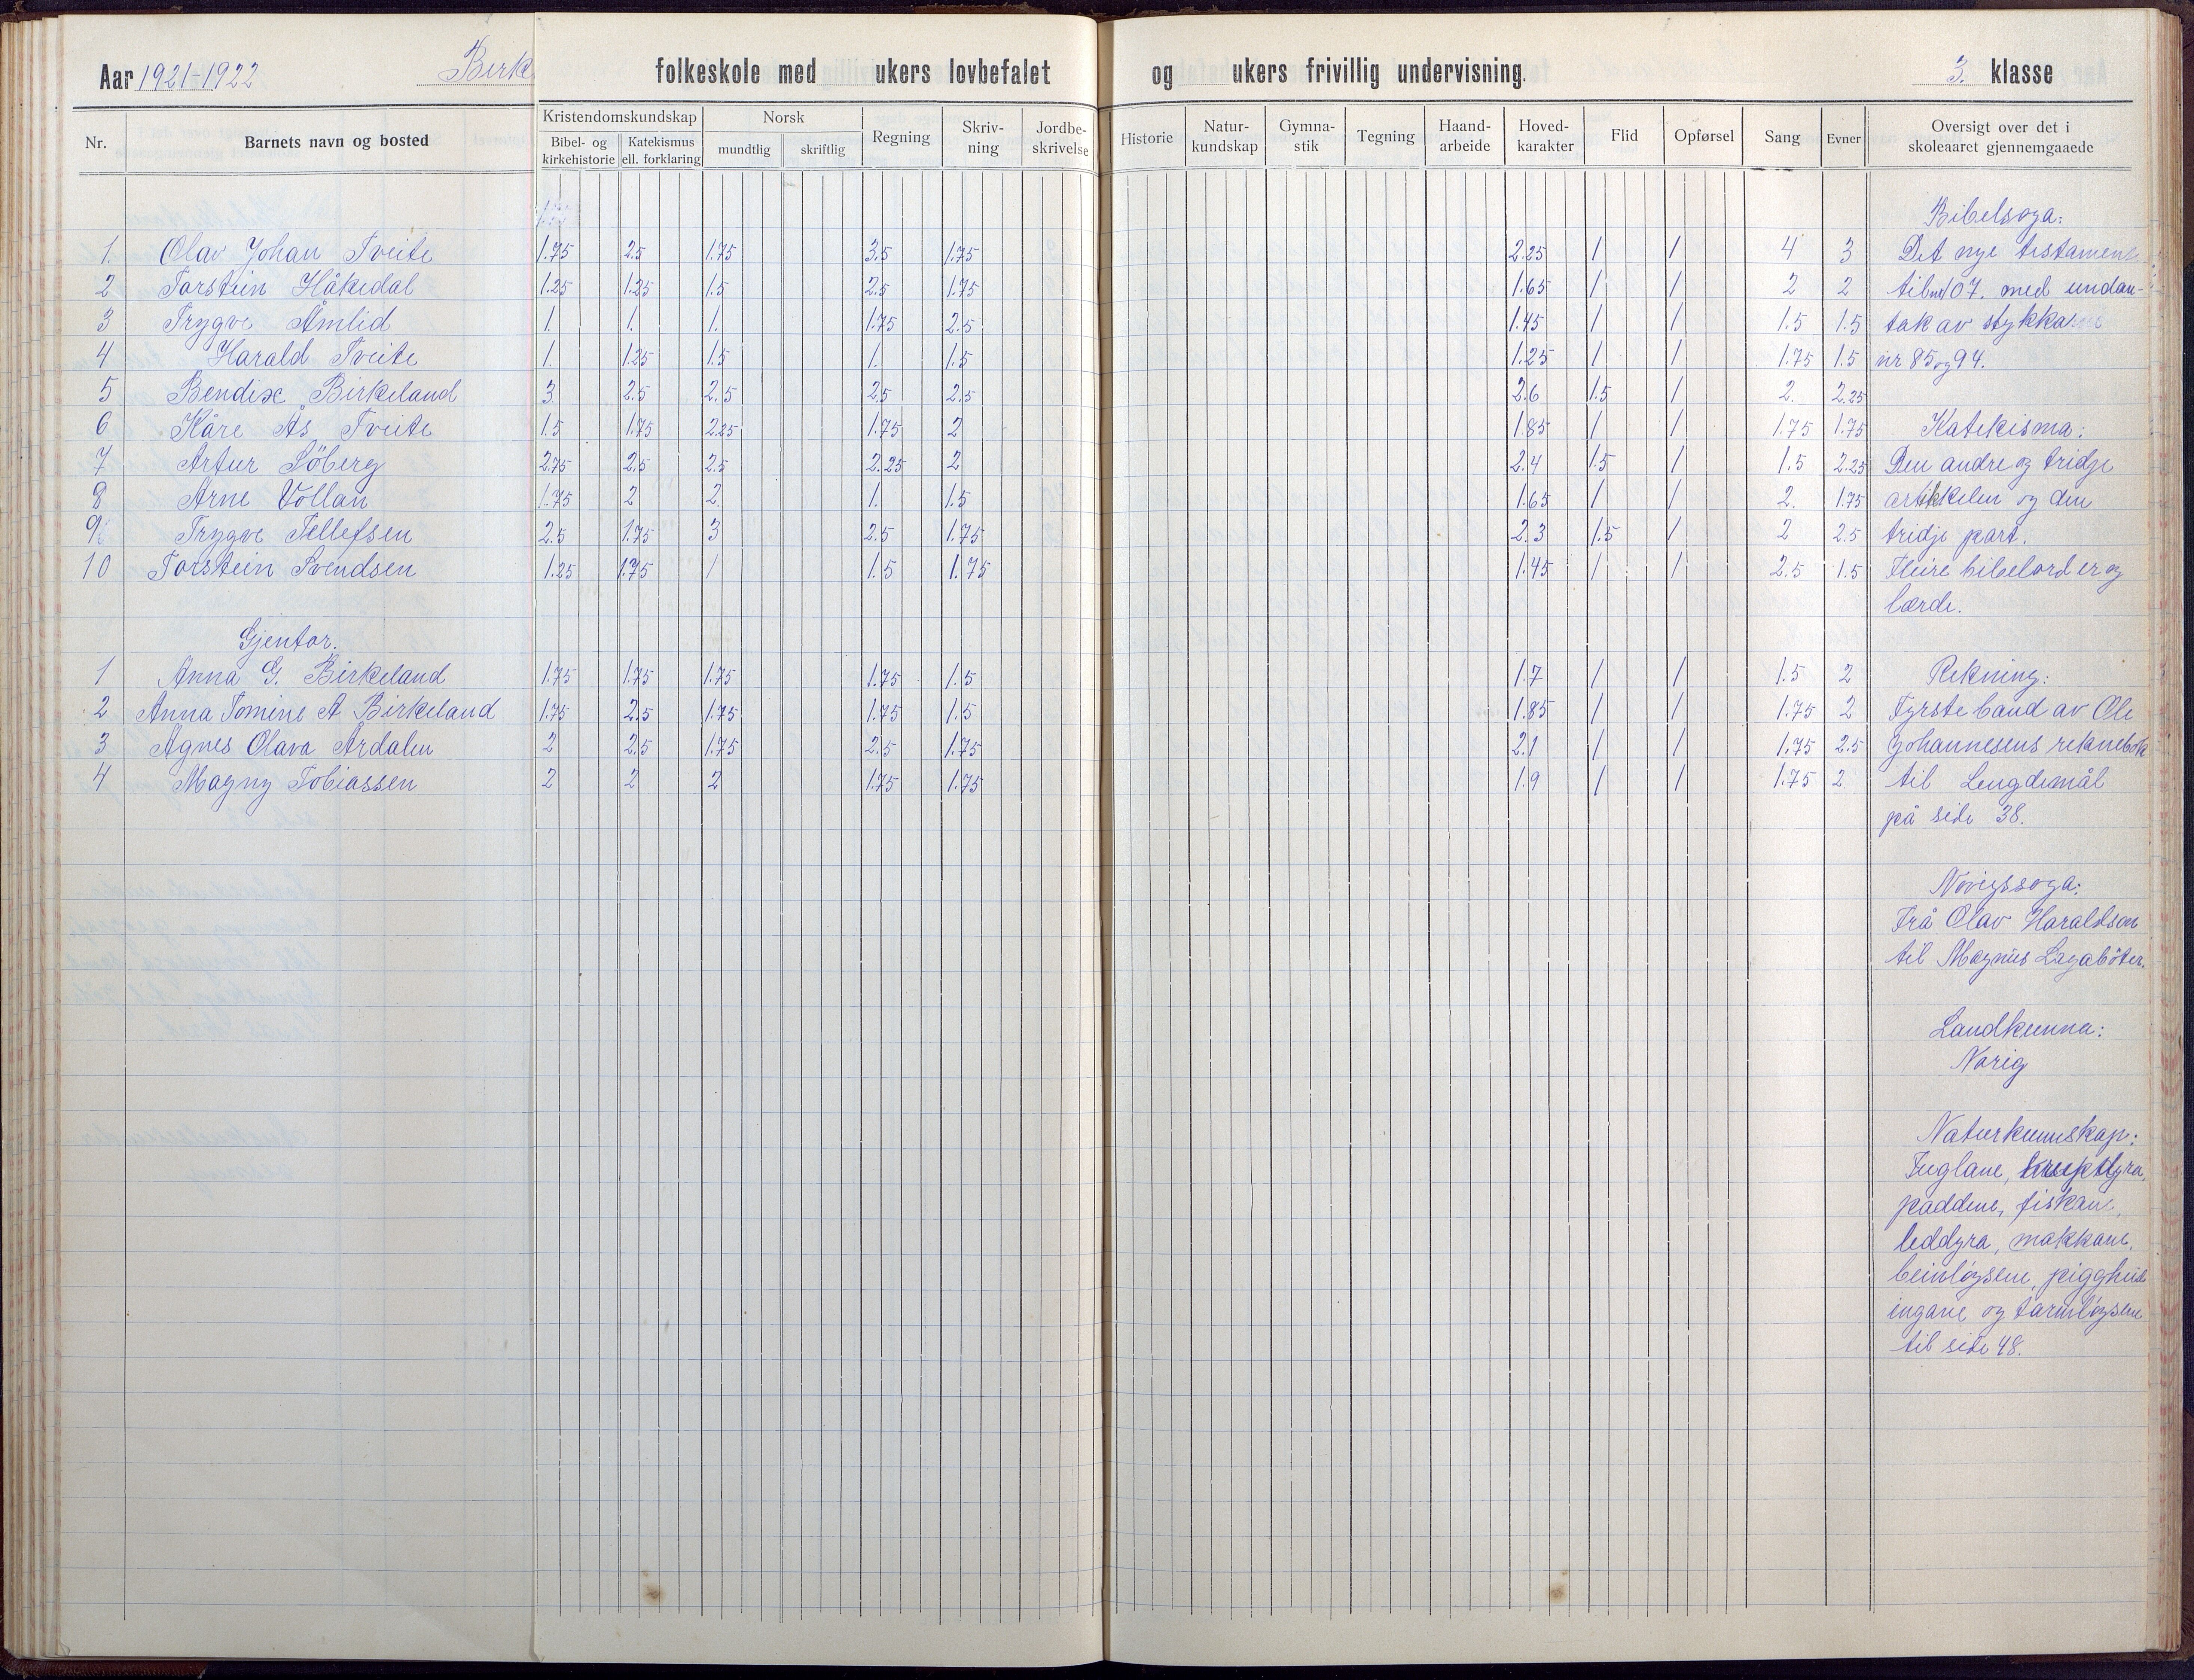 Aar 1921-1922 Birk folkeskole med ukers lovbefalet og ukers frivillig undervisning. 3. klasse
Nr. Barnets navn og bosted Kristendomskundskap Bibel- og kirkehistorie Katekismus ell. forklaring Norsk mundtlig skriftlig Regning Skriv-ning Jordbe-skrivelse Historie Natur-kundskap Gymna-stik Tegning Haand-arbeide Hoved-karakter Flid Opførsel Sang Evner Oversigt over det i skoleaaret gjennemgaaede
Bibelsoga:
1. Olav Johan Tveite 1.75 2.5 1.75 3.5 1.75 2.25 1 1 4 3 Det nye testament
2 Torstein Håkedal 1.25 1.25 1.5 2.5 1.75 1.65 1 1 2 2 til 107. med undan-
3 Trygve Åmlid 1. 1. 1. 1.75 2.5 1.45 1 1 1.5 1.5 tak av stykka
4 Harald Tveite 1. 1.25 1.5 1. 1.5 1.25 1 1 1.75 1.5 nr 85 og 94.
5 Bendix Birkeland 3 2.5 2.5 2.5 2.5 2.6 1.5 1 2. 2.25
6 Kåre Ås Tveite 1.5 1.75 2.25 1.75 2 1.85 1 1 1.75 1.75 Katekisma:
7 Artur Söberg 2.75 2.5 2.5 2.25 2 2.4 1.5 1 1.5 2.25 Den andre og tridje
8 Arne Vollan 1.75 2 2. 1. 1.5 1.65 1 1 2. 1.75 artikkelen og den
9 Trygve Tellefsen 2.5 1.75 3 2.5 1.75 2.3 1.5 1 2 2.5 tridje part.
10 Torstein Svendsen 1.25 1.75 1 1.5 1.75 1.45 1 1 2.5 1.5 Fleire bibelord er og
lærde.
Gjentor.
1 Anna G. Birkeland 1.75 1.75 1.75 1.75 1.5 1.7 1 1 1.5 2 Rekning:
2 Anna Tomine A Birkeland 1.75 2.5 1.75 1.75 1.5 1.85 1 1 1.75 2 Fyrste band av Ole
3 Agnes Olava Årdalen 2 2.5 1.75 2.5 1.75 2.1 1 1 1.75 2.5 Johannesens reknebok
4 Magny Tobiassen 2 2 2 1.75 1.75 1.9 1 1 1.75 2 til Lengdemål
på side 38.
Norigssoga:
Frå Olav Haraldson
til Magnus Lagabøter.
Landkunna:
Norig
Naturkunnskap:
Fuglane, krypdyra,
paddene, fiskane,
leddyra, makkane,
beinløysene, pigghud
ingane og tarmløysene
til side 48.